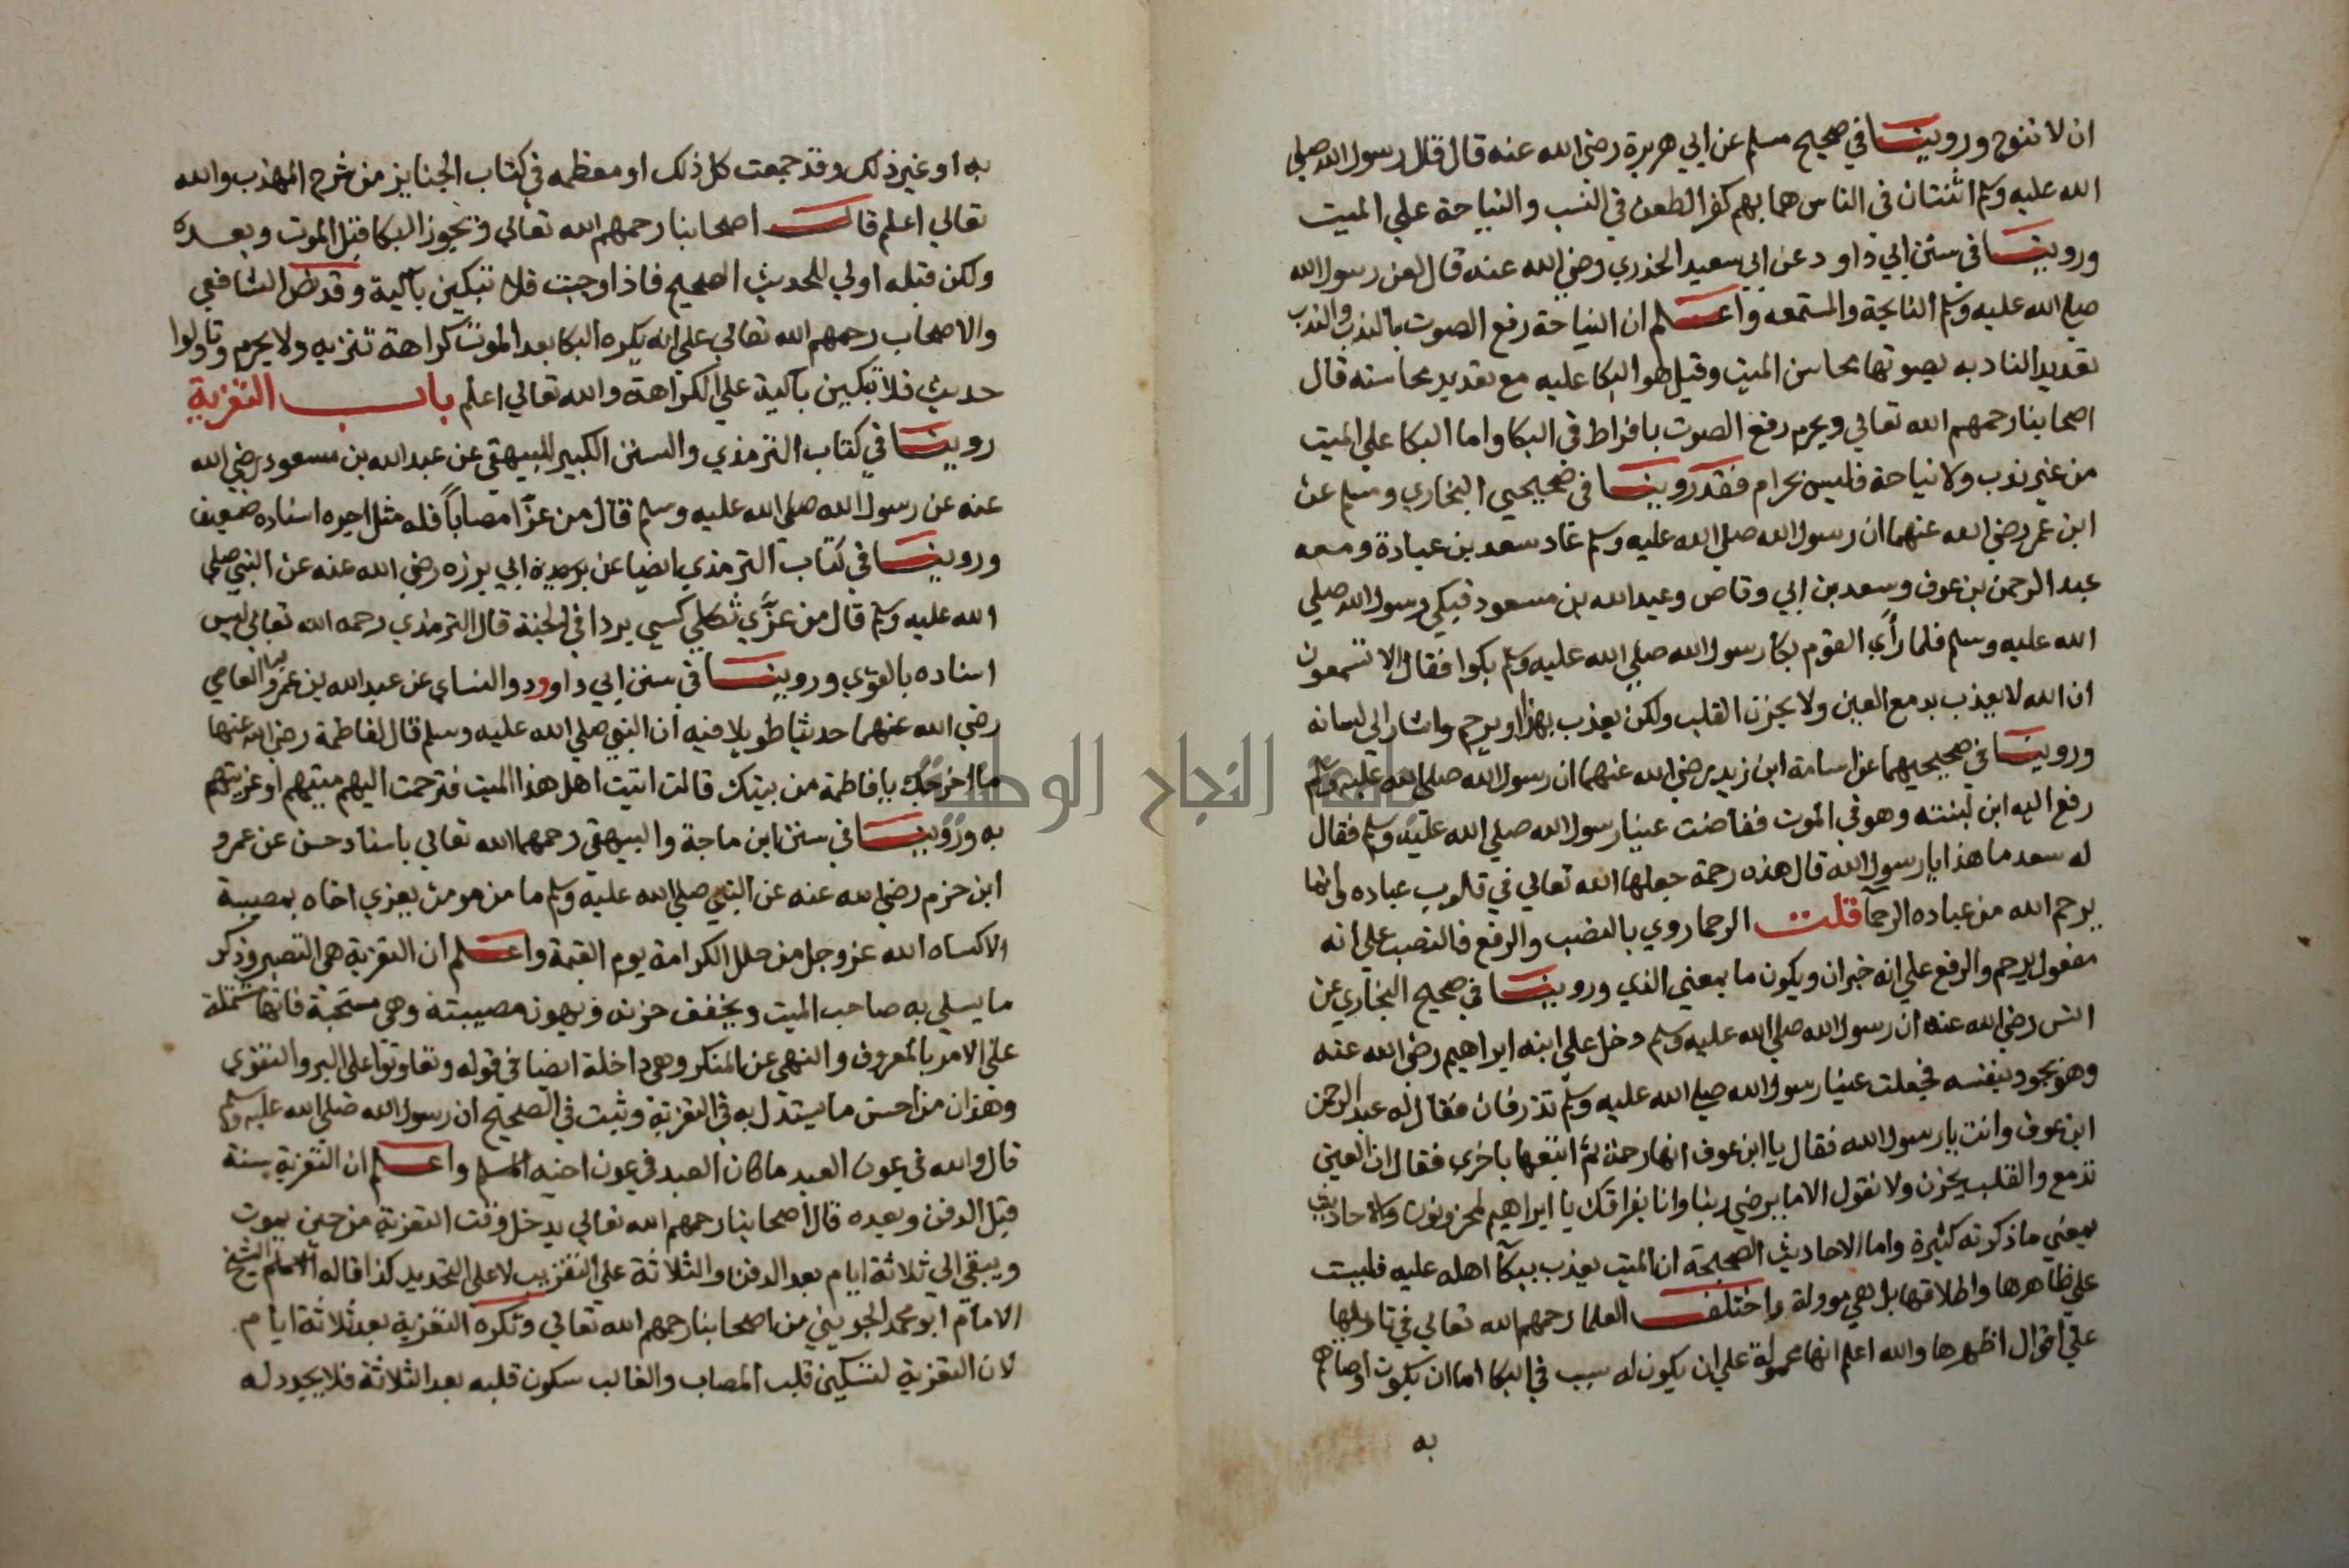 ان لا ننوح وروينا في صحيح مسلم عن ابي هريرة رضي الله عنه قال قال رسول الله صلي
الله عليه وسلم اثنتان في الناس هما بهم كفر الطعن في النسب والنياحة علي الميت
وروينا في سنن ابي داود عن ابي سعيد الخدري رضي الله عنه قال لعن رسول الله
صلي الله عليه وسلم النايحة والمستمعه واعلم ان النياحة رفع الصوت بالندب والندب
تعديد النادبه بصوتها محاسن الميت وقيل هو البكا عليه مع تعديد محاسنه قال
اصحابنا رحمهم الله تعالي ويحرم رفع الصوت بافراط في البكا واما البكا علي الميت
من غير ندب ولا نياحة فليس بحرام فقد روينا في صحيحي البخاري ومسلم عن
ابن عمر رضي الله عنهما ان رسول الله صلي الله عليه وسلم عاد سعد بن عبادة ومعه
عبد الرحمن بن عوف وسعد بن ابي وقاص وعبد الله بن مسعود فبكي رسول الله صلي
الله عليه وسلم فلما رأي القوم بكا رسول الله صلي الله عليه وسلم بكوا فقال الا تسمعون
ان الله لا يعذب بدمع العين ولا بحزن القلب ولكن يعذب بهذا او يرحم واشار الي لسانه
وروينا في صحيحيهما عن اسامة ابن زيد رضي الله عنهما ان رسول الله صلي الله عليه وسلم
رفع اليه ابن لبنته وهو في الموت ففاضت عينا رسول الله صلي الله عليه وسلم فقال
له سعد ما هذا يا رسول الله قال هذه رحمة جعلها الله تعالي في قلوب عباده وانما
يرحم الله من عباده الرحمآ قلت الرحما روي بالنصب والرفع فالنصب علي انه
مفعول يرحم والرفع علي انه خبر ان ويكون ما بمعني الذي وروينا في صحيح البخاري عن
انس رضي الله عنه ان رسول الله صلي الله عليه وسلم دخل علي ابنه ابراهيم رضي الله عنه
وهو يجود بنفسه فجعلت عينا رسول الله صلي الله عليه وسلم تذرفان فقال له عبد الرحمن
ابن عوف وانت يا رسول الله فقال يا ابن عوف انها رحمة ثم اتبعها باخري فقال ان العين
تدمع والقلب يحزن ولا نقول الا ما يرضي ربنا وانا بفراقك يا ابراهيم لمحزونون والاحاديث
بمعني ما ذكرته كثيرة واما الاحاديث الصحيحة ان الميت يعذب ببكآ اهله عليه فليست
علي ظاهرها واطلاقها بل هي موولة واختلف العلما رحمهم الله تعالي في تاويلها
علي اقوال اظهرها والله اعلم انها محمولة علي ان يكون له سبب في البكا اما ان يكون اوصاهم
به
به او غير ذلك وقد جمعت كل ذلك او معظمه في كتاب الجنايز من شرح المهذب والله
تعالي اعلم قال اصحابنا رحمهم الله تعالي ويجوز البكا قبل الموت وبعده
ولكن قبله اولي للحديث الصحيح فاذا وجبت فلا تبكين باكية وقد نص الشافعي
والاصحاب رحمهم الله تعالي علي انه يكره البكا بعد الموت كراهة تنزيه ولا يحرم وتاولوا
حديث فلا تبكين باكية علي الكراهة والله تعالي اعلم باب التعزية
روينا في كتاب الترمذي والسنن الكبير للبيهقي عن عبد الله بن مسعود رضي الله
عنه عن رسول الله صلي الله عليه وسلم قال من عزا مصاباً فله مثل اجره اسناده ضعيف
وروينا في كتاب الترمذي ايضا عن ابي برزه رضي الله عنه عن النبي صلي
الله عليه وسلم قال من عزّي ثكلي كسي بردا في الجنة قال الترمذي رحمه الله تعالي ليس
اسناده بالقوي وروينا في سنن ابي داوود والنساي عن عبد الله بن عمرو بن العاصي
رضي الله عنهما حديثا طويلا فيه ان النبي صلي الله عليه وسلم قال لفاطمة رضي الله عنها
ما اخرجك يا فاطمة من بيتك قالت اتيت اهل هذا الميت فترحمت اليهم ميتهم او عزيتهم
به وروينا في سنن ابن ماجة والبيهقي رحمهما الله تعالي باسناد حسن عن عمرو
ابن حزم رضي الله عنه عن النبي صلي الله عليه وسلم ما من مومن يعزي اخاه بمصيبة
الا كساه الله عز وجل من حلل الكرامة يوم القيمة واعلم ان التعزية هي التصبير وذكر
ما يسلي به صاحب الميت ويخفف حزنه ويهون مصيبته وهي مستحبة فانها مشتملة
علي الامر بالمعروف والنهي عن المنكر وهي داخلة ايضا في قوله وتعاونوا علي البر والتقوي
وهذان من احسن ما يستدل به في التعزية وثبت في الصحيح ان رسول الله صلي الله عليه وسلم
قال والله في عون العبد ما كان العبد في عون اخيه المسلم واعلم ان التعزية سنة
قبل الدفن وبعده قال اصحابنا رحمهم الله تعالي يدخل وقت التعزية من حين يموت
ويبقي الي ثلاثة ايام بعد الدفن والثلاثة علي التقريب لا علي التحديد كذا قاله الشيخ
الامام ابو محمد الجويني من اصحابنا رحمهم الله تعالي وتكره التعزية بعد ثلاثة ايام
لان التعزية لتسكين قلب المصاب والغالب سكون قلبه بعد الثلاثة فلا يجدد له
النجاح الوطنية